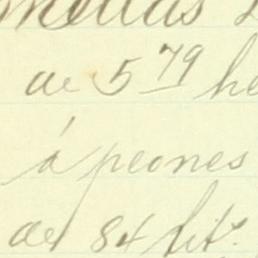 de 5 79 he
á peones
de 84 lits.